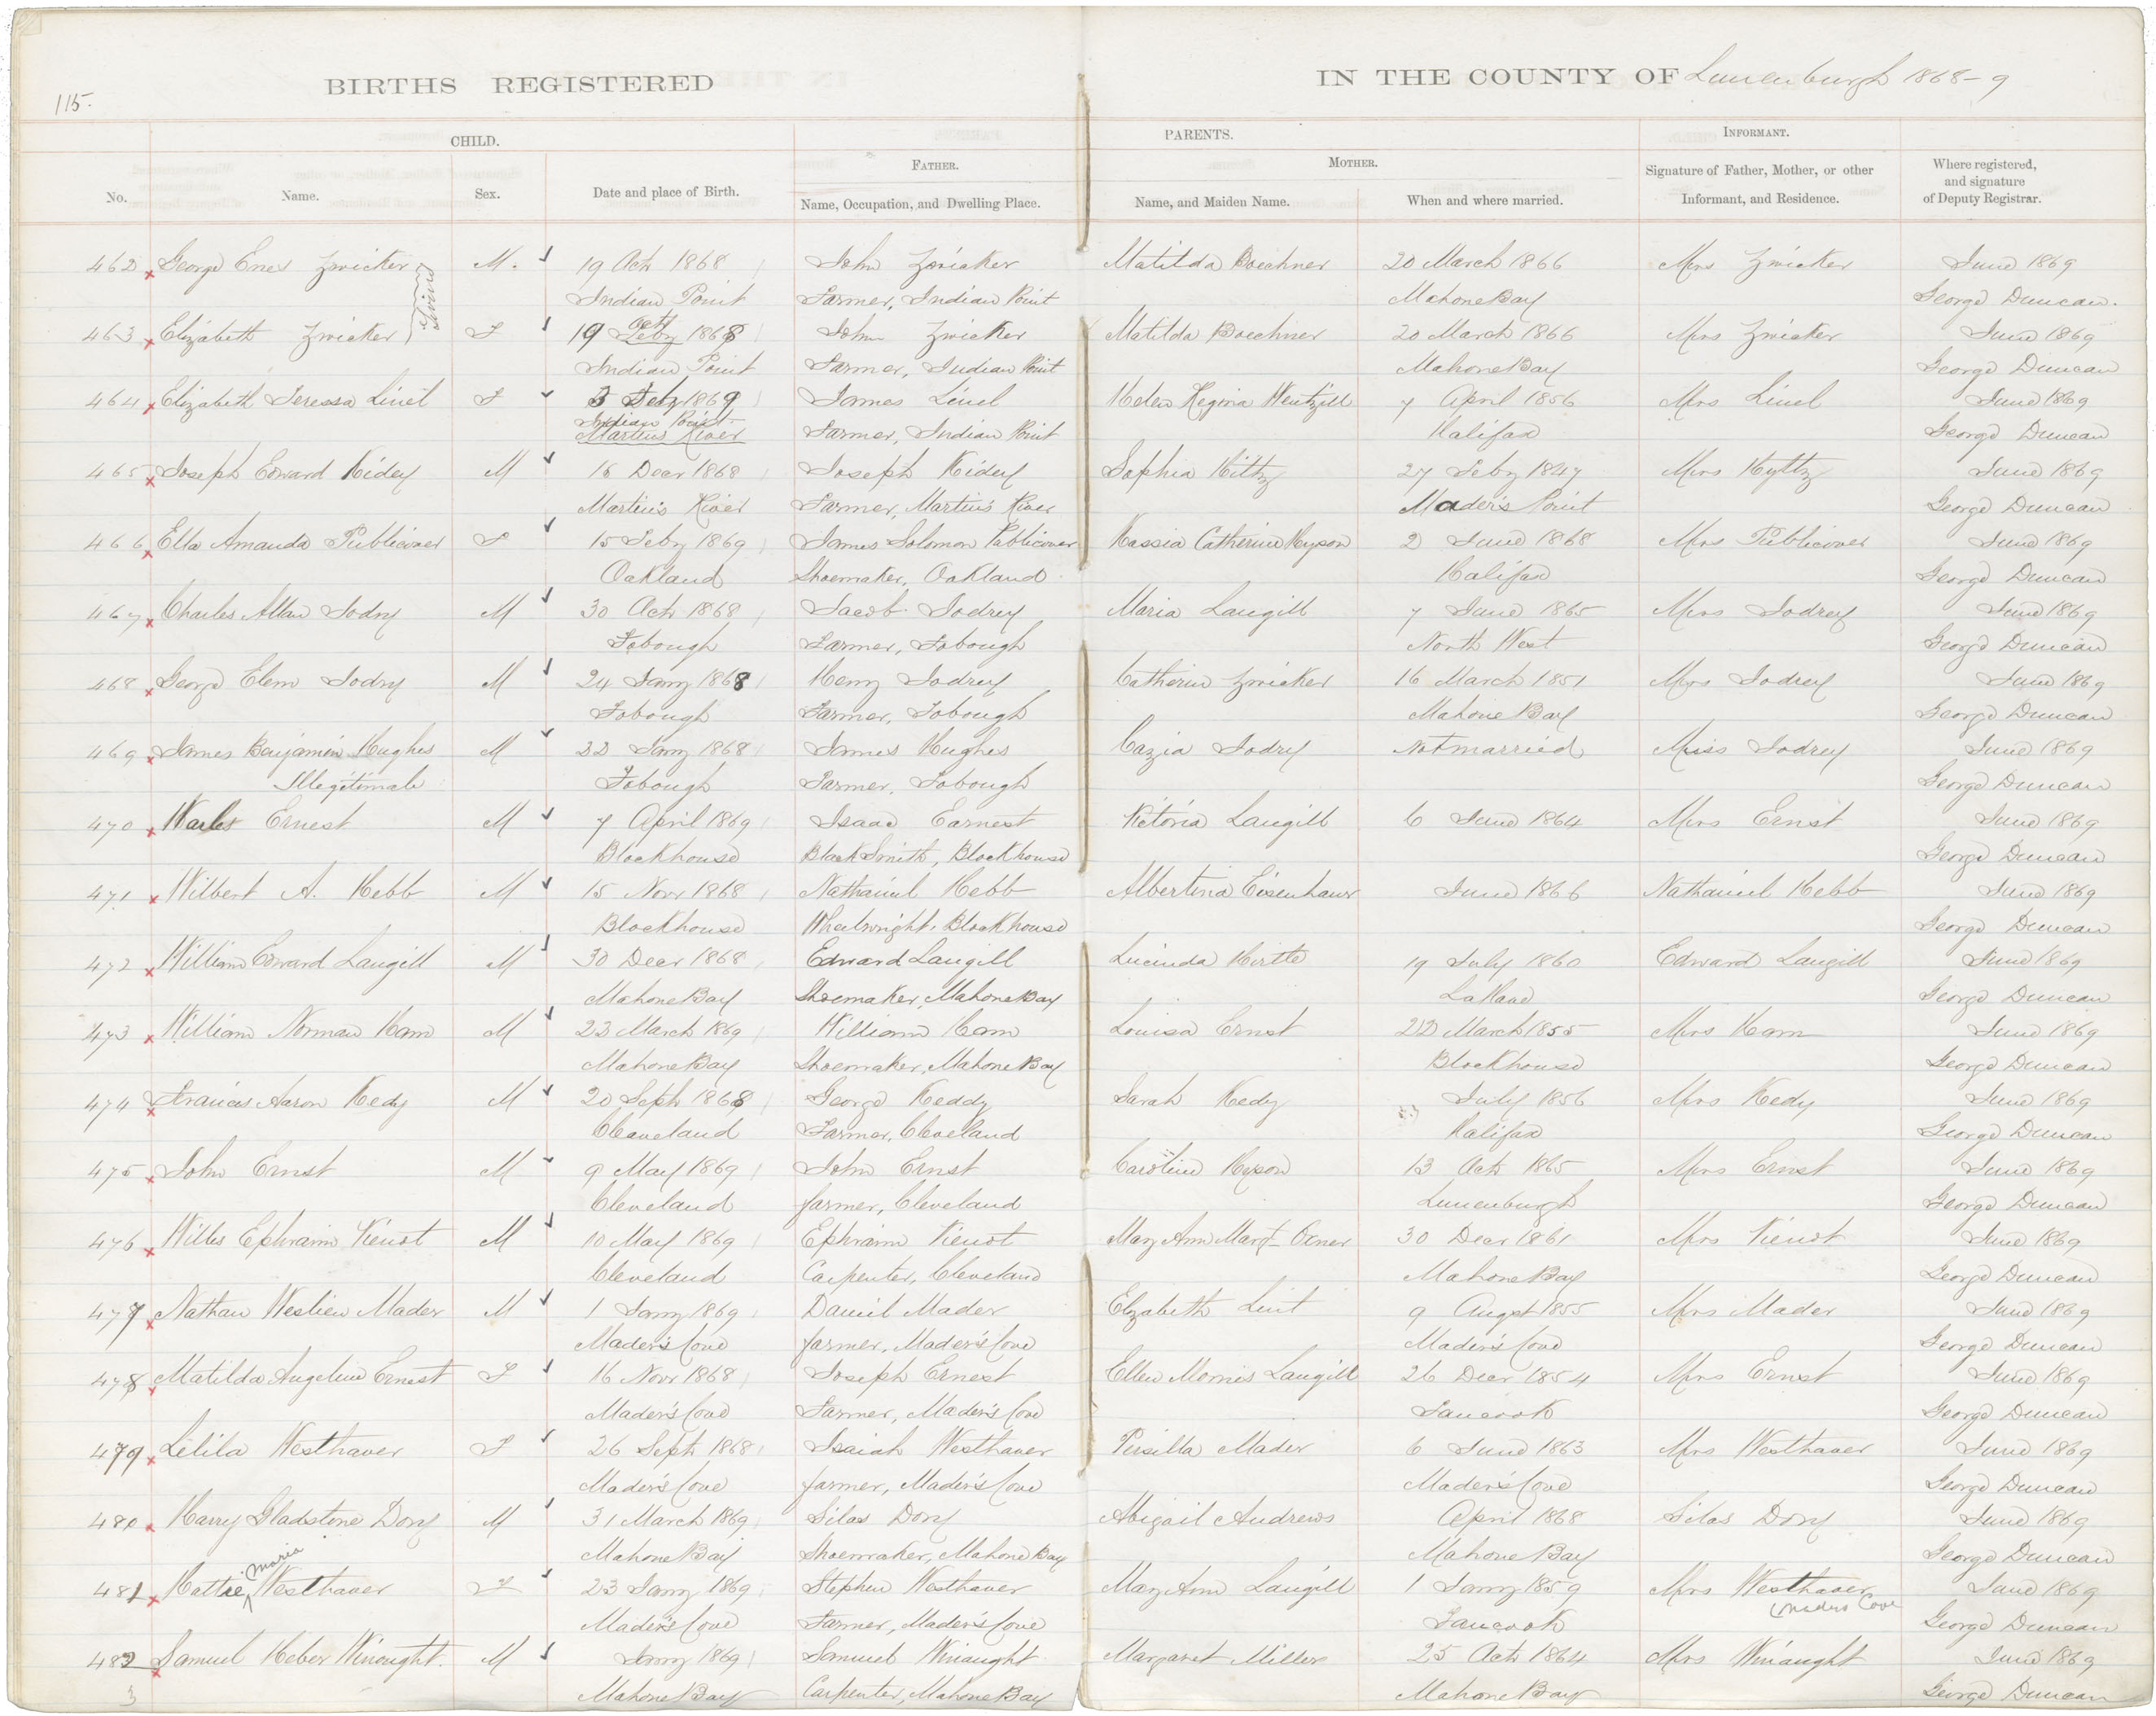 115.
BIRTHS REGISTERED
IN THE COUNTY OF Lunenburgh 1868-9
CHILD.
PARENTS.
INFORMANT.
FATHER.
MOTHER.
No.
Name.
Sex.
Date and place of Birth.
Name, Occupation, and Dwelling Place.
Name, and Maiden Name.
When and where married.
Signature of Father, Mother, or other Informant, and Residence.
Where registered, and signature of Deputy Registrar.
462 George Enes Zwicker M. 19 Octr 1868 John Zwicker Matilda Boechner 20 March 1866 Mrs Zwicker June 1869
Twins
Indian Point Farmer, Indian Point Mahone Bay George Duncan.
463 Elizabeth Zwicker F 19 Octr Feby 1868 John Zwicker Matilda Boechner 20 March 1866 Mrs Zwicker June 1869
Indian Point Farmer, Indian Point Mahone Bay George Duncan
464 Elizabeth Teressa Linel F 3 Feby 1869 James Linel Helen Regina Wentzill 7 April 1856 Mrs Linel June 1869
Indian Point Martins River Farmer, Indian Point Halifax George Duncan
465 Joseph Edward Hidey M 16 Decr 1868 Joseph Hidey Sophia Hiltz 27 Feby 1847 Mrs Hyltz June 1869
Martin's River Farmer, Martin's River Mader's Point George Duncan
466 Ella Amanda Publicover F 15 Feby 1869 James Solomon Publicover Kassia Catherine Hyson 2 June 1868 Mrs Publicover June 1869
Oakland Shoemaker, Oakland Halifax George Duncan
467 Charles Allan Jodry M 30 Octr 1868 Jacob Jodrey Maria Langill 7 June 1865 Mrs Jodrey June 1869
Fobough Farmer, Fobough North West George Duncan
468 George Elem Jodry M 24 Jany 1868 Henry Jodrey Catherine Zwicker 16 March 1851 Mrs Jodrey June 1869
Fobough Farmer, Fobough Mahone Bay George Duncan
469 James Benjamin Hughes M 22 Jany 1868 James Hughes Cazia Jodry Not married Miss Jodrey June 1869
Illegitimate Fobough Farmer, Fobough George Duncan
470 Ernest M 7 April 1869 Isaac Earnest Victoria Langill 6 June 1864 Mrs Ernst June 1869
Blockhouse BlackSmith, Blockhouse George Duncan
471 Wilbert A. Hebb M 15 Novr 1868 Nathaniel Hebb Albertina Eisenhaur June 1866 Nathaniel Hebb June 1869
Blockhouse Wheelwright, Blockhouse George Duncan
472 William Edward Langill M 30 Decr 1868 Edward Langill Lucinda Hirtle 19 July 1860 Edward Langill June 1869
Mahone Bay Shoemaker, Mahone Bay LaHave George Duncan
473 William Norman Ham M 23 March 1869 William Ham Louisa Ernst 22 March 1855 Mrs Ham June 1869
Mahone Bay Shoemaker, Mahone Bay Blockhouse George Duncan
474 Francis Aaron Kedy M 20 Septr 1868 George Keddy Sarah Kedy July 1856 Mrs Kedy June 1869
Cleaveland Farmer, Cleveland Halifax George Duncan
475 John Ernst M 9 May 1869 John Ernst Caroline Hyson 13 Octr 1865 Mrs Ernst June 1869
Cleveland farmer, Cleveland Lunenburgh George Duncan
476 Willis Ephraim Vienot M 10 May 1869 Ephraim Vienot Mary Ann Margt Oxner 30 Decr 1861 Mrs Vienot June 1869
Cleveland Carpenter, Cleveland Mahone Bay George Duncan
477 Nathan Weslien Mader M 1 Jany 1869 Daniel Mader Elizabeth Lint 9 Augst 1855 Mrs Mader June 1869
Mader's Cove farmer, Mader's Cove Mader's Cove George Duncan
478 Matilda Angeline Ernest F 16 Novr 1868 Joseph Ernest Ellen Morris Langill 26 Decr 1854 Mrs Ernst June 1869
Mader's Cove Farmer, Mader's Cove Tancook George Duncan
479 Lelila Westhaver F 26 Septr 1868 Isaiah Westhaver Persilla Mader 6 June 1863 Mrs Westhaver June 1869
Mader's Cove farmer, Mader's Cove Mader's Cove George Duncan
480 Harry Gladstone Dory M 31 March 1869 Silas Dory Abigail Andrews April 1868 Silas Dory June 1869
Mahone Bay Shoemaker, Mahone Bay Mahone Bay George Duncan
481 Hattie Maria Westhaver F 23 Jany 1869 Stephen Westhaver Mary Ann Langill 1 Jany 1859 Mrs Westhaver June 1869
Mader's Cove Farmer, Mader's Cove Tancook Maders Cove George Duncan
482 Samuel Heber Winought M Jany 1869 Samuel Winaught Margaret Miller 25 Octr 1864 Mrs Winaught June 1869
3 Mahone Bay Carpenter, Mahone Bay Mahone Bay George Duncan